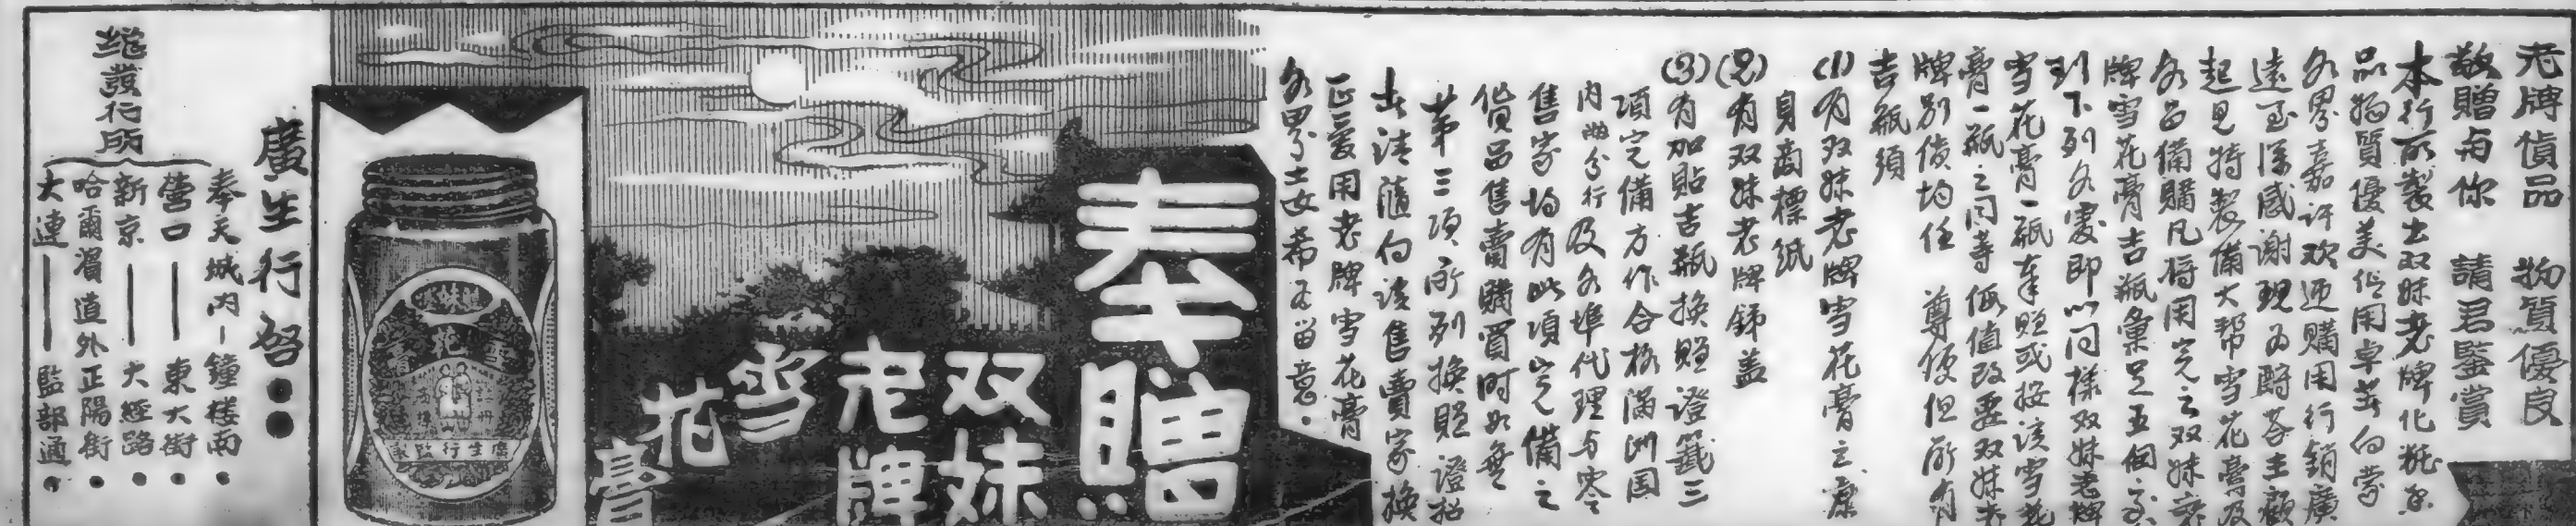 老牌貨品 物質優良
敬贈与你 請君鑒賞
本行所製士双妹老牌化粧
品物質優美俗用卓著向蒙
各界嘉許欢迎購用行銷廣
遠至深感謝現为酬荅主顧
起見特製備大帮雪花膏及
各品備購凡将用完之双妹
牌雪花膏吉瓶彙足五個交
到下列各處即以同樣双妹老牌
雪花膏一瓶奉贈或按該雪花
膏一瓶之同等価值改要双妹老
牌別貨均任 尊便但所有
吉瓶須
(1)有双妹老牌雪花膏之瓶
身商標紙
(2)有双妹老牌錦盖
(3)有加貼吉瓶換贈證籤三
項完備方作合格滿洲国
内各分行及各埠代理与零
售家均有此項完備之
貨品售賣購買時如無
第三項所列換贈證招
者請隨向該售賣家換
正爱用老牌雪花膏
各界士女希为留意.
奉贈
双妹
老牌
雪
花
膏
雙妹嘜
雪花膏
廣生行監製
廣生行啓
總發行所
奉天城内—鐘楼南
營口——東大街
新京——大經路
哈爾濱道外正陽街
大連——監部通